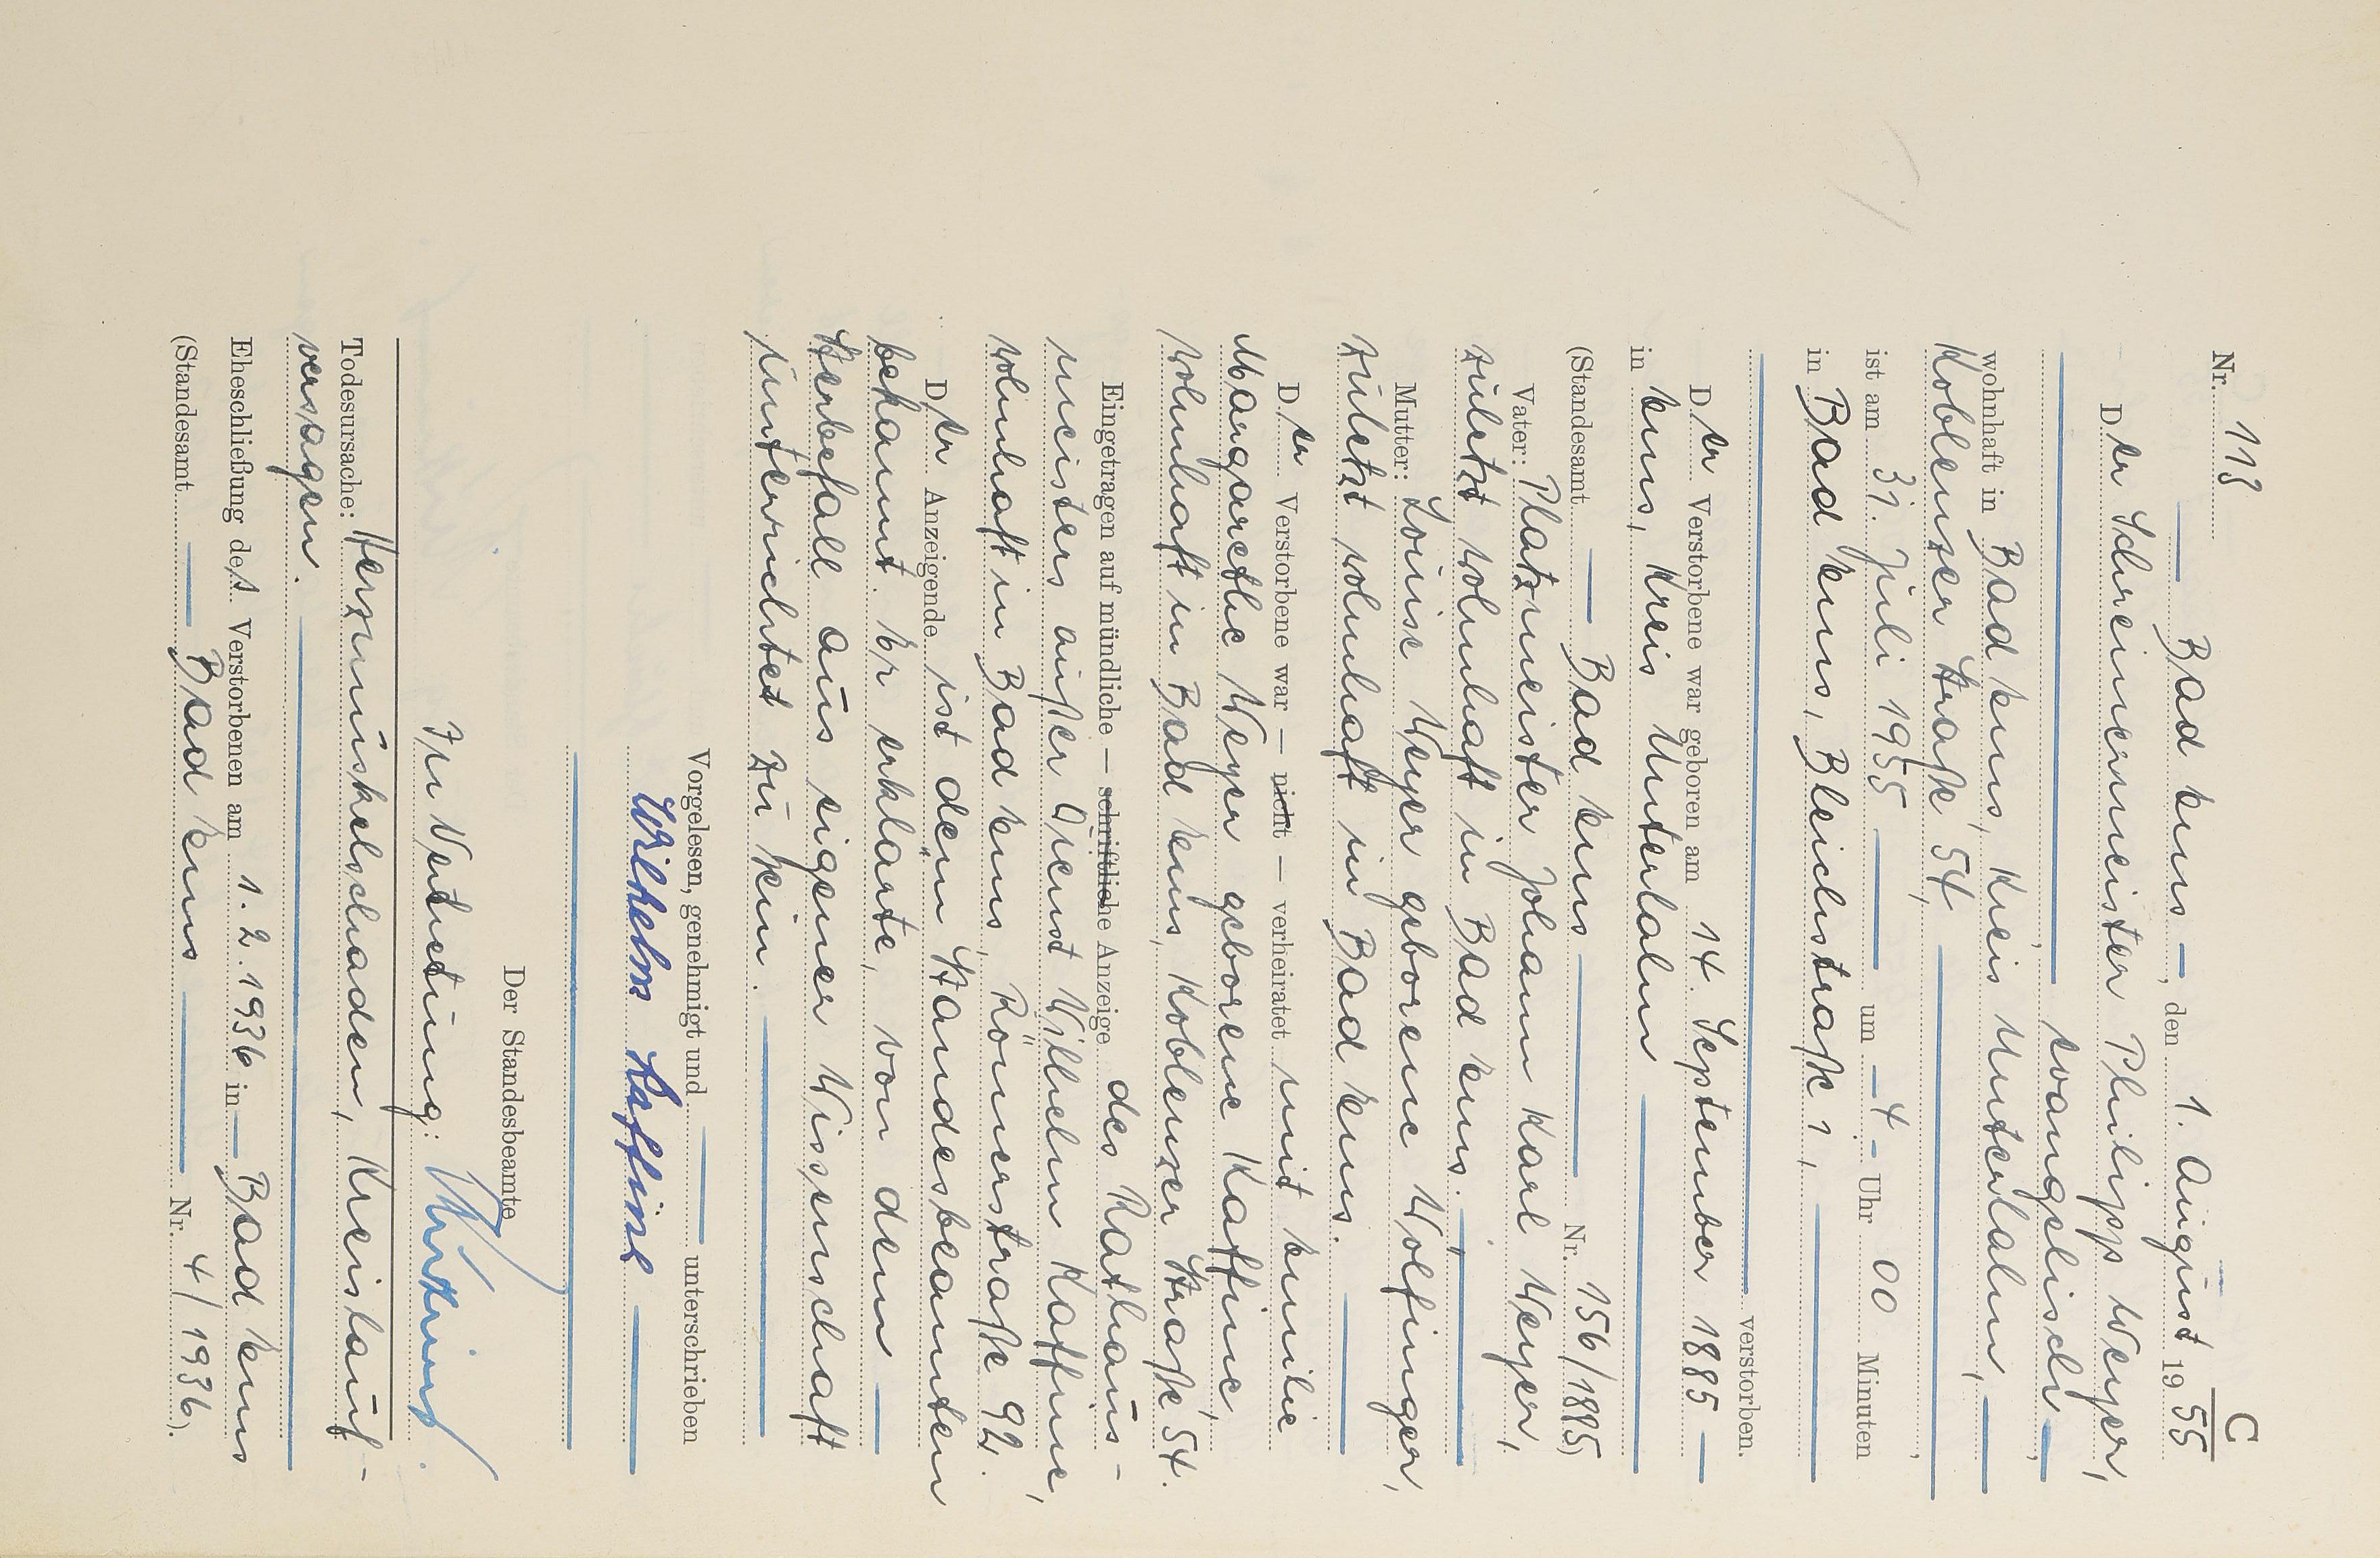 C
Nr. 113
Bad Ems, den 1. August 1955
Der Schreinermeister Philipp Weyer,
evangelisch,
wohnhaft in Bad Ems, Kreis Unterlahn,
Koblenzer Straße 54,
ist am 31. Juli 1955 um 4 Uhr 00 Minuten
in Bad Ems, Bleichstraße 1,
verstorben.
Der Verstorbene war geboren am 14. September 1885
in Ems, Kreis Unterlahn
(Standesamt Bad Ems Nr. 156/1885)
Vater: Platzmeister Johann Karl Weyer,
zuletzt wohnhaft in Bad Ems.
Mutter: Louise Weyer geborene Wolfinger,
zuletzt wohnhaft in Bad Ems.
Der Verstorbene war — nicht — verheiratet mit Emilie
Margarethe Weyer geborene Kaffine,
wohnhaft in Bad Ems, Koblenzer Straße 54.
Eingetragen auf mündliche — schriftliche Anzeige des Rathaus-
meisters außer Dienst Wilhelm Kaffine,
wohnhaft in Bad Ems, Römerstraße 92.
Der Anzeigende ist dem Standesbeamten
bekannt. Er erklärte, von dem
Sterbefall aus eigener Wissenschaft
unterrichtet zu sein.
Vorgelesen, genehmigt und unterschrieben
Wilhelm Kaffine
Der Standesbeamte
In Vertretung:
Todesursache: Herzmuskelschaden, Kreislauf-
versagen.
Eheschließung des Verstorbenen am 1. 2. 1936 in Bad Ems
(Standesamt Bad Ems Nr. 4/1936).